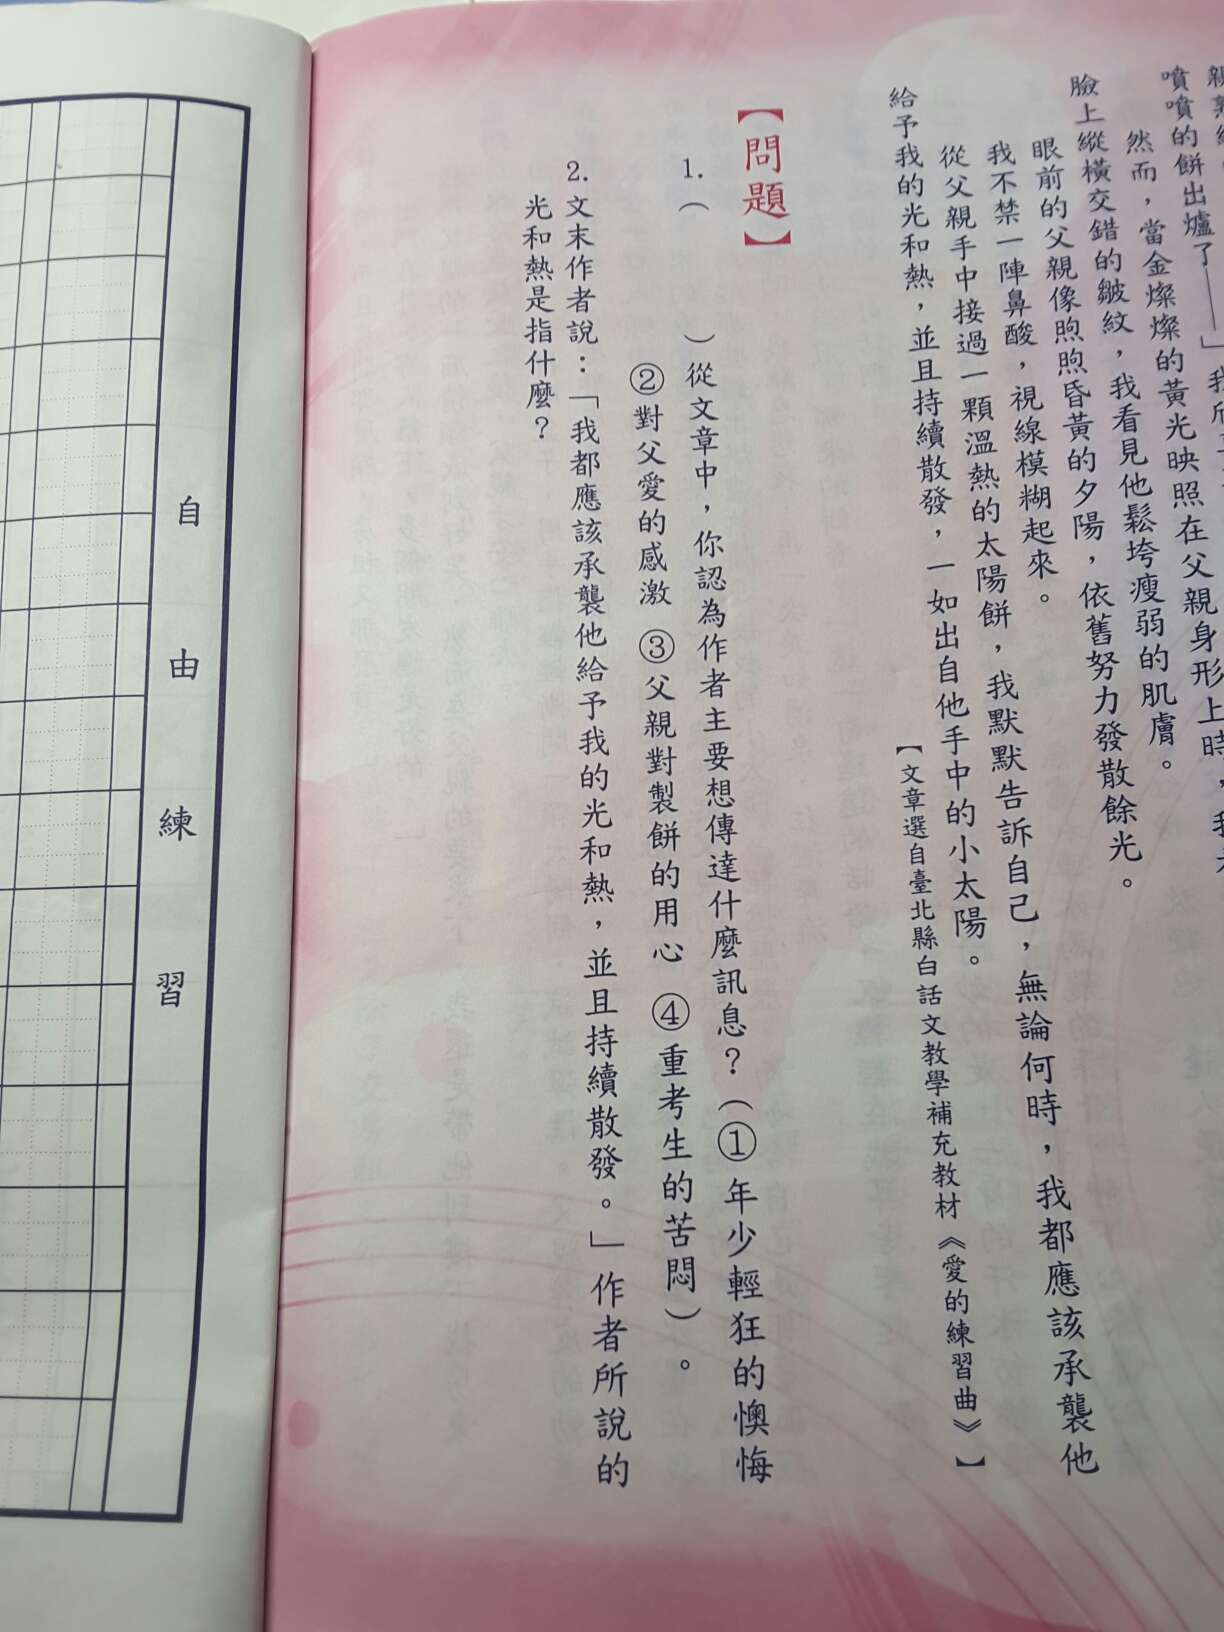 噴噴的餅出爐了——」我欣
然而，當金燦燦的黃光映照在父親身形上時，我
臉上縱橫交錯的皺紋，我看見他鬆垮瘦弱的肌膚。
眼前的父親像煦煦昏黃的夕陽，依舊努力發散餘光。
我不禁一陣鼻酸，視線模糊起來。
從父親手中接過一顆溫熱的太陽餅，我默默告訴自己，無論何時，我都應該承襲他
給予我的光和熱，並且持續散發，一如出自他手中的小太陽。
【文章選自臺北縣白話文教學補充教材《愛的練習曲》】
【問題】
1.（　　）從文章中，你認為作者主要想傳達什麼訊息？（①年少輕狂的懊悔
②對父愛的感激 ③父親對製餅的用心 ④重考生的苦悶）。
2.文末作者說：「我都應該承襲他給予我的光和熱，並且持續散發。」作者所說的
光和熱是指什麼？
自由練習